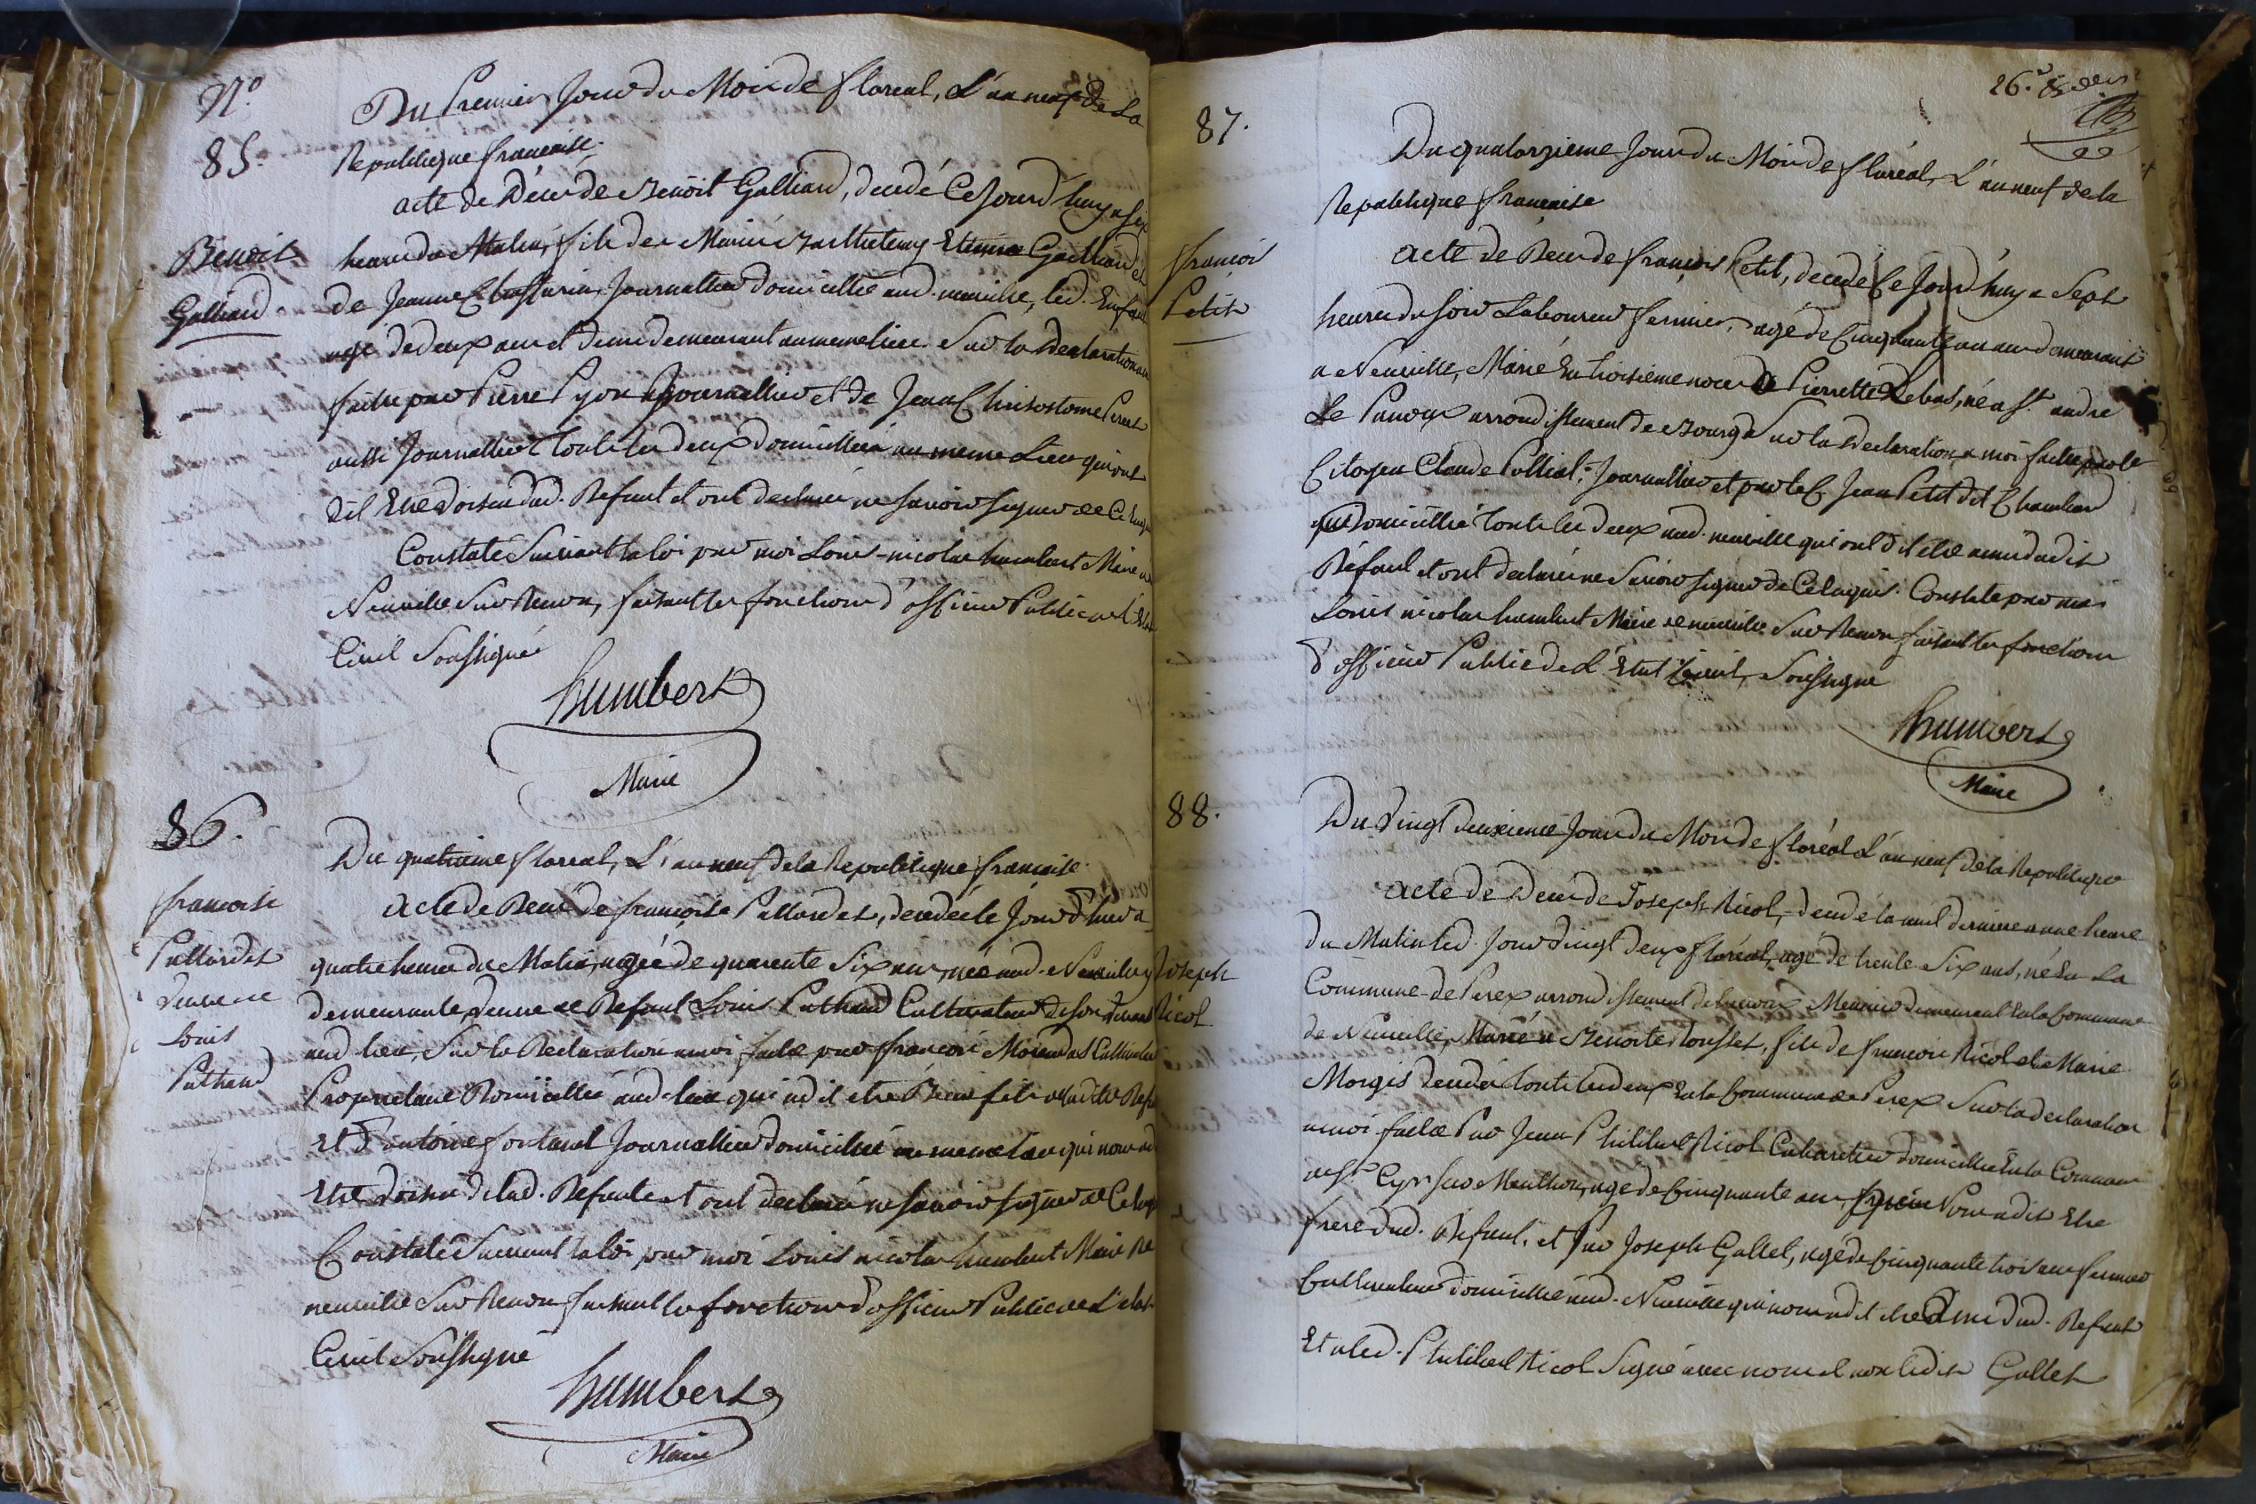 N.o
85.
Du Premier Jour du Mois de floreal, L'an neuf de La
Republique francaise.
acte de Décès de Benoit Galliand, decedé Ce Jourd'huy a six
heures du Matin, fils de Mariés Barthelemy Etienne Galliand et
de Jeanne Journallier domicillié aud. neuville, led. Enfant
agé de deux ans et demi demeurant au meme lieu. Sur la Declaration
faitte par Pierre Pyon Journallier et de Jean Chrisostome Perret
aussi Journallier Tout les deux domicilliés au meme Lieu qui ont
dit Etre Voisin dud. Defunt et ont declaré ne Savoir signer de Ce Enquis
Constaté Suivant la loi par moi Louis-nicolas humbert Maire de
Neuville Sur Renon, faisant les fonctions d'officier Public de l'Etat
Civil Soussigné
Benoit
Galliand
humbert
Maire
86.
Du quatrieme floreal, L'an neuf de la Republique francaise.
acte de Decès de françoise Pallordet, decedée le Jourd'huy a
quatre heures du Matin, agée de quarente Six ans, née aud. Neuville, y
demeurante, Veuve de Defunt Louis Puthaud Cultivateur de son vivant
aud. lieu, Sur la Declaration a moi faitte par francois Cultivateur
Proprietaire Domicillié aud. lieu qui a dit etre Beau fils de laditte Defunte
Et D'antoine fontanel Journallier domicillié au meme lieu qui nous a dit
Etre Voisin de lad. Defunte et ont declaré ne Savoir signer de Ce Enquis
Constaté Suivant la loi par moi Louis nicolas humbert Maire De
neuville Sur Renon faisant les fonctions d'officier Public de L'etat
Civil Soussigné
francoise
Pallordet
Veuve de
Louis
Puthaud
humbert
Maire
26.e
87.
Du quatorzieme Jour du Mois de floréal, L'an neuf de la
Republique francaise
acte de Decès de françois Petit, decedé Ce Jourd'huy a Sept
heures du Soir Laboureur fermier, agé de Cinquante un ans demeurant
a Neuville, Marié En troisieme noces De Pierrette Lebas, né a St. andré
Le Panoux arrondissement de Bourg Sur la Declaration a moi faitte par le
Citoyen Claude Journallier et par le C. Jean Petit dit Chambard
domicillié Tout les deux aud. neuville qui ont dit etre amis dudit
Défunt et ont declaré ne Savoir signer de Ce Enquis. Constaté par moi
Louis nicolas humbert Maire de neuville Sur Renon faisant les fonctions
d'officier Public de L'Etat Civil, Soussigné
francois
Petit
humbert
Maire
88.
Du Vingt Deuxieme Jour du Mois de floréal L'an neuf de la Republique
acte de Decès de Joseph Nicol, decedé la nuit derniere a une heure
du Matin led. Jour Vingt Deux floréal, agé de trente Six ans, né En La
Commune de Perex arrondissement de Meunier demeurant En la Commune
de Neuville, Marié a Benoite Rousset, fils de francois Nicol et de Marie
Morgis decedés Tout les deux En la Commune de Perex Sur la declaration
a moi faitte Par Jean Philibert Nicol Cabaretier domicillié En la Commune
de St. Cyr Sur Menthon, agé de Cinquante ans nous a dit Etre
frere dud. Défunt, et Par Joseph Gallet, agé de Cinquante trois ans fermier
Cultivateur domicillié aud. Neuville qui nous a dit etre Ami dud. Defunt
Et a led. Philibert Nicol Signé avec nous et non ledit Gallet
Joseph
Nicol